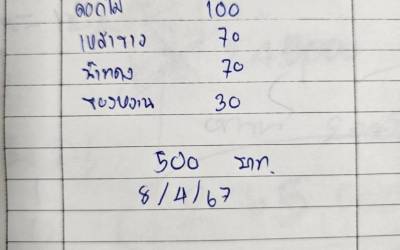 ดอกไม้ 100
เหล้าขาว 70
น้ำแดง 70
ของหวาน 30
500 บาท.
8/4/67